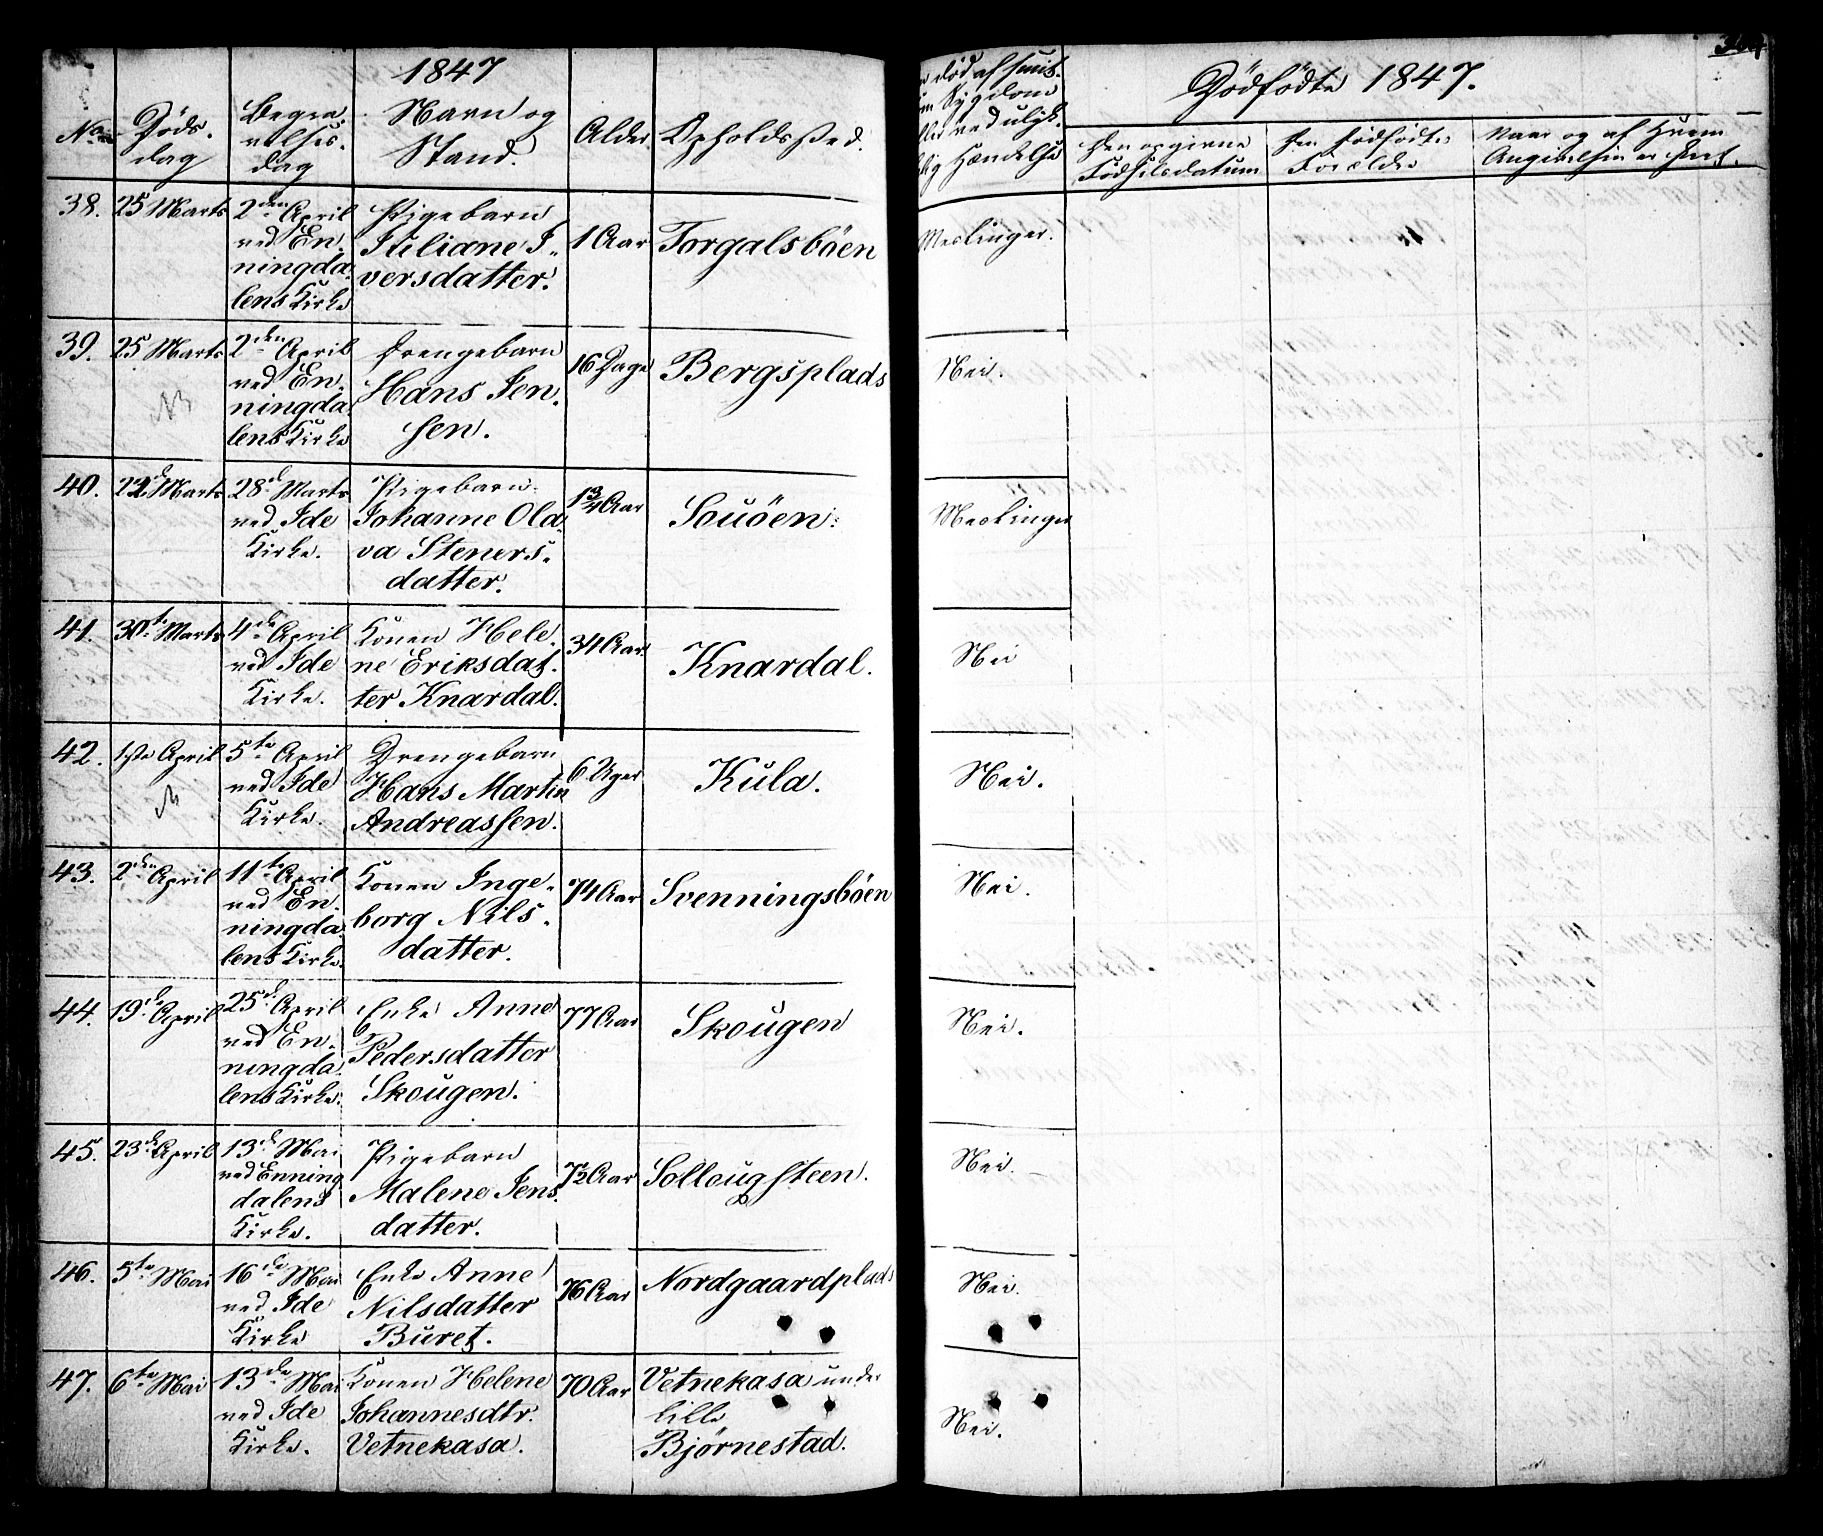 1847
No
Döds-
dag
Begra-
velses-
dag
Navn og
Stand.
Alder
Opholdssted.
38.
25 Marts
2den April
ved En-
ningda-
lens Kirke
Pigebarn
Juliane I-
versdatter.
1 Aar
Torgalsböen
Meslinger.
39.
25 Marts
2den April
ved En-
ningda
lens Kirke
Drengebarn
Hans Jen-
sen.
16 Dage
Bergsplads
Nei.
40.
22d Marts
28d Marts
ved Ide
Kirke.
Pigebarn
Johanne Ola-
va Steners-
datter.
1 3/4 Aar
Souöen
Meslinger
41.
30te Marts
4de April
ved Ide
Kirke.
Konen Hele-
ne Eriksdat-
ter Knardal.
34 Aar.
Knardal.
Nei
42.
1ste April
5te April
ved Ide
Kirke.
Drengebarn
Hans Martin
Andreassen.
6 Uger
Kula.
Nei.
43.
2den April
11te April
ved En-
ningda-
lens Kirke.
Konen Inge-
borg Nils-
datter.
74 Aar
Svenningsböen
Nei.
44.
19de April
25d April
ved En-
ningda-
lens Kirke.
Enke Anne
Pedersdatter
Skougen.
77 Aar
Skougen
Nei.
45.
23d April
13d Mai
ved Enning
dalens
Kirke.
Pigebarn
Malene Jens-
datter.
7 1/2 Aar
Sollougsteen.
Nei.
46.
5te Mai
16de Mai
ved Ide
Kirke
Enke Anne
Nilsdatter
Buret.
76 Aar
Nordgaardplads
Nei.
47.
6te Mai
13de Mai
ved Ide
Kirke.
Konen Helene
Johannesdtr.
Vetnekasa.
70 Aar
Vetnekasa under
lille
Björnestad.
Nei.
död af smit-
Sygdom
ved ulyk-
Hændelse
Dödfödte 1847.
Den opgivne
Födselsdatum
Den Dödfödtes
Forældre
Naar og af Hvem
Angivelsen er skeet.